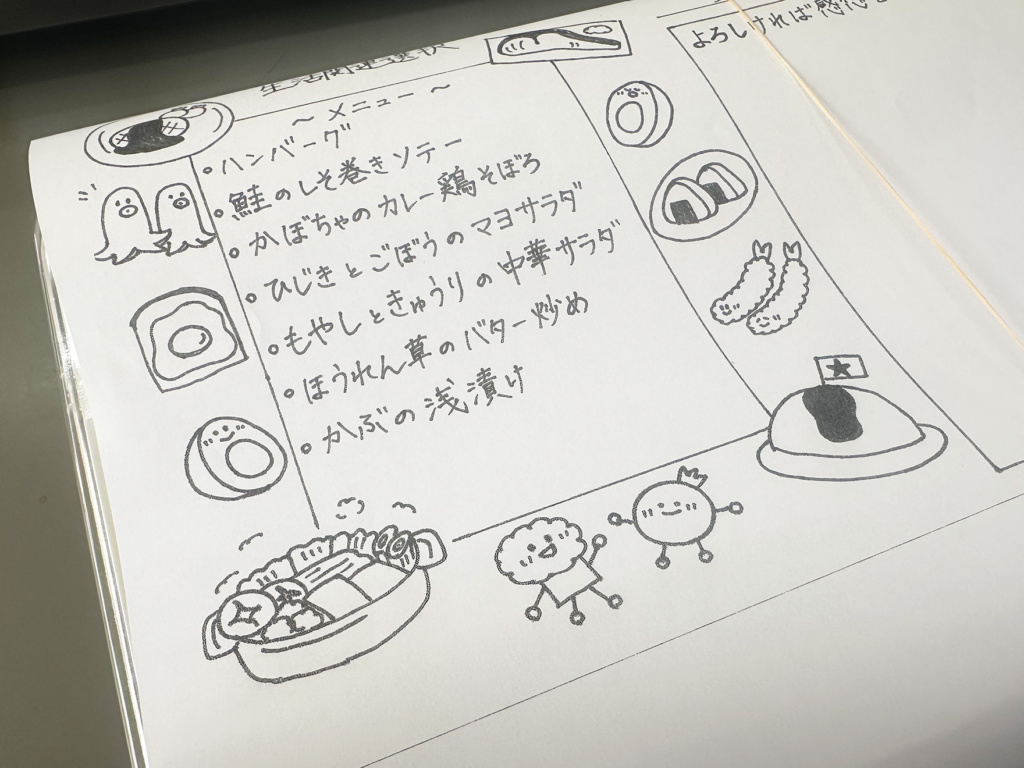 生活関連選択
～ メニュー ～
・ハンバーグ
・鮭のしそ巻きソテー
・かぼちゃのカレー鶏そぼろ
・ひじきとごぼうのマヨサラダ
・もやしときゅうりの中華サラダ
・ほうれん草のバター炒め
・かぶの浅漬け
よろしければ感想